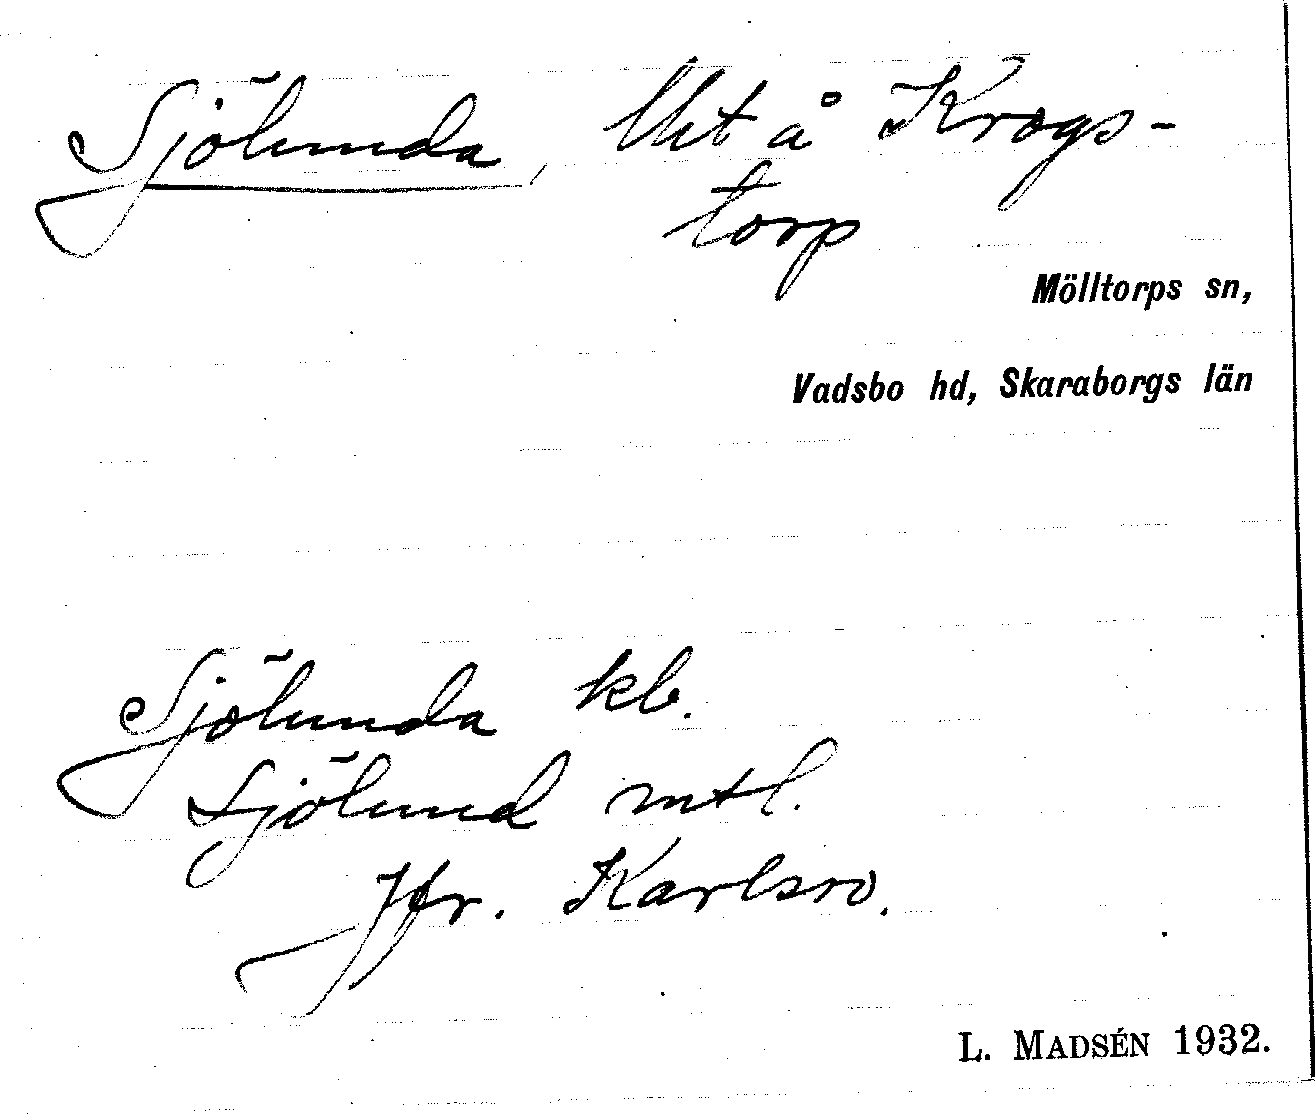 Sjölunda, Uht å Krogs-
torp
Mölltorps sn,
Vadsbo hd, Skaraborgs län
Sjölunda kb.
Sjölund mtl.
Jfr. Karlsro.
L. MADSÉN 1932.